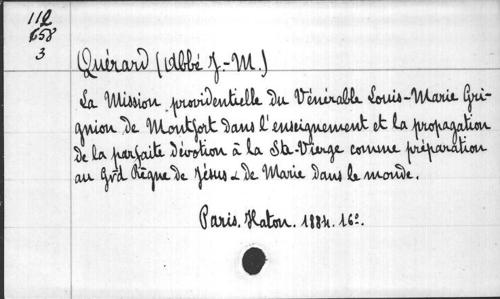 112
658
3
Quérard (Abbé J.-M.)
La Mission providentielle du Vénérable Louis-Marie Gri-
gnion de Montfort dans l'enseignement et la propagation
de la parfaite dévotion à la Ste-Vierge comme préparation
au Grd Règne de Jésus & de Marie dans le monde.
Paris. Haton. 1884. 16º.